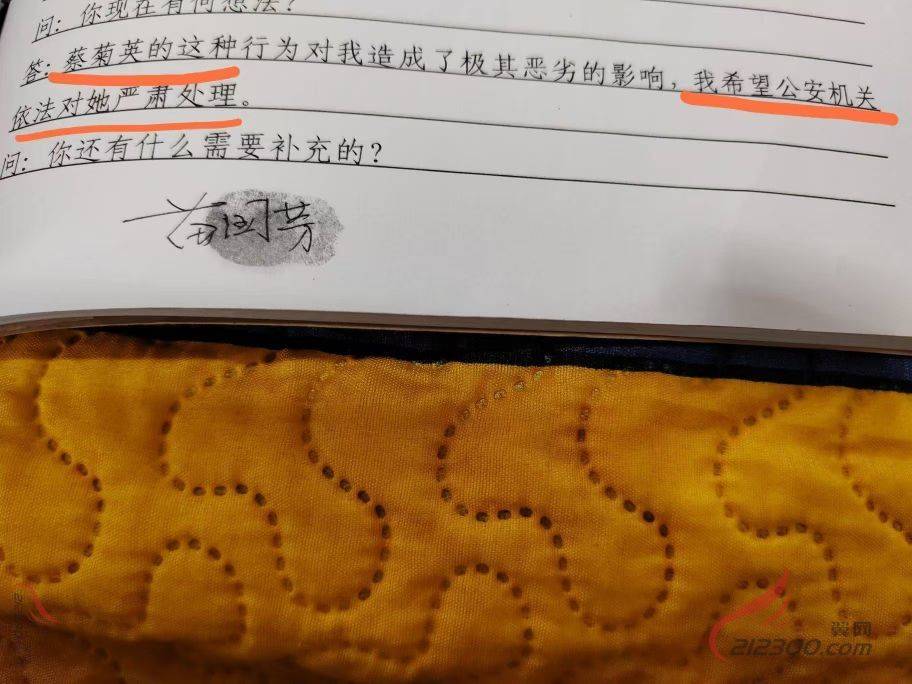 问：你现在有何想法？
答：蔡菊英的这种行为对我造成了极其恶劣的影响，我希望公安机关
依法对她严肃处理。
问：你还有什么需要补充的？
翼网
212300.com